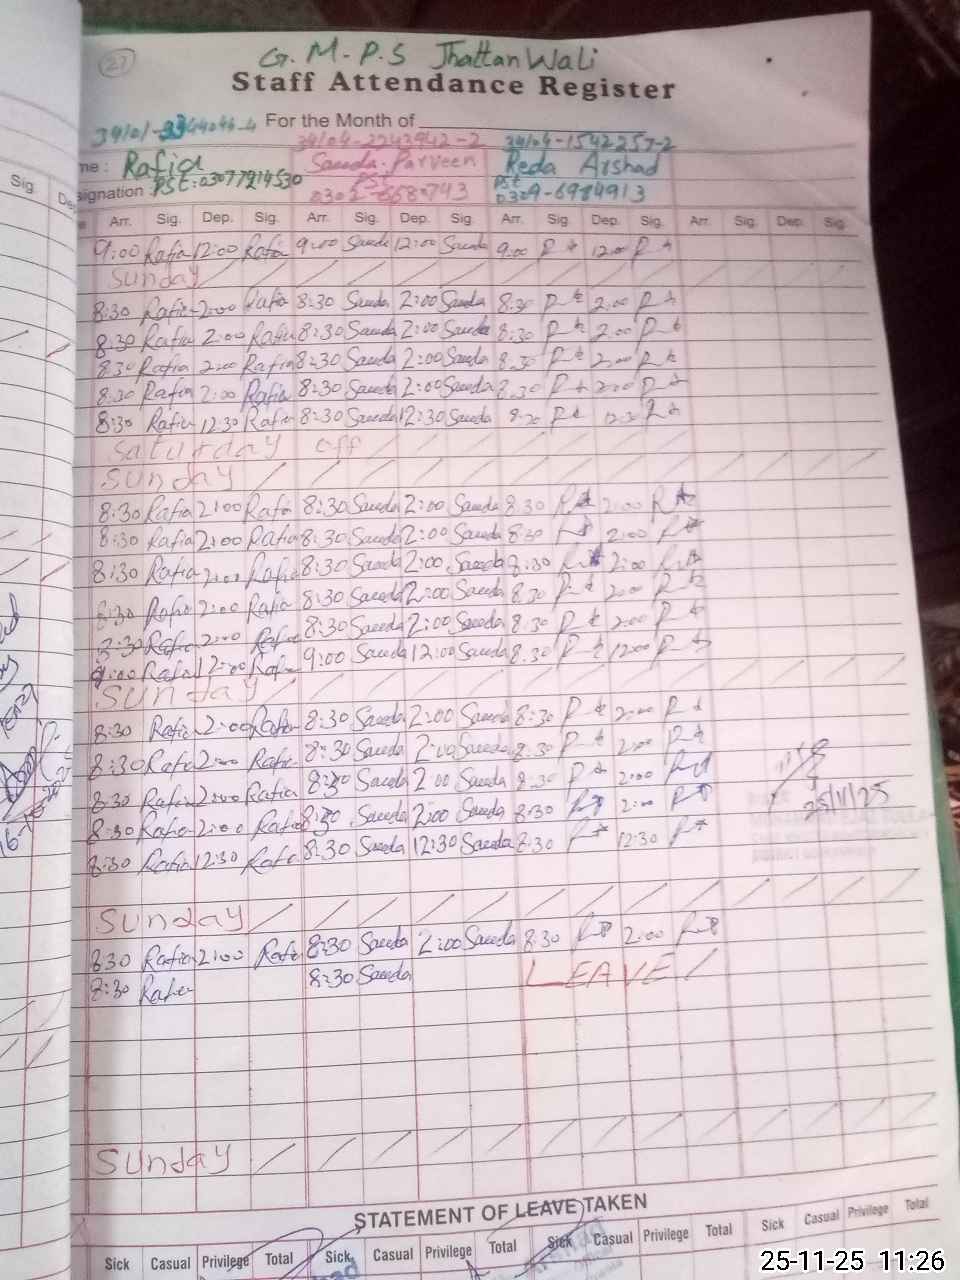 27
G.M.P.S Jhattan Wali
Staff Attendance Register
For the Month of
Rafia Saeeda Parveen Reda Arshad
Designation : PST: 03077914530 PST PST
0309-6984913
Sig. Arr. Sig. Dep. Sig. Arr. Sig. Dep. Sig. Arr. Sig. Dep. Sig. Arr. Sig. Dep. Sig.
9:00 Rafia 12:00 Rafia 9:00 Saeeda 12:00 Saeeda 9:00 12:00
Sunday
8:30 Rafia 2:00 Rafia 8:30 Saeeda 2:00 Saeeda 8:30 2:00
8:30 Rafia 2:00 Rafia 8:30 Saeeda 2:00 Saeeda 8:30 2:00
8:30 Rafia 2:00 Rafia 8:30 Saeeda 2:00 Saeeda 8:30 2:00
8:30 Rafia 2:00 Rafia 8:30 Saeeda 2:00 Saeeda 8:30 2:00
8:30 Rafia 12:30 Rafia 8:30 Saeeda 12:30 Saeeda 8:30 12:30
Saturday off
Sunday
8:30 Rafia 2:00 Rafia 8:30 Saeeda 2:00 Saeeda 8:30 2:00
8:30 Rafia 2:00 Rafia 8:30 Saeeda 2:00 Saeeda 8:30 2:00
8:30 Rafia 2:00 Rafia 8:30 Saeeda 2:00 Saeeda 8:30 2:00
8:30 Rafia 2:00 Rafia 8:30 Saeeda 2:00 Saeeda 8:30 2:00
8:30 Rafia 2:00 Rafia 8:30 Saeeda 2:00 Saeeda 8:30 2:00
9:00 Rafia 12:00 Rafia 9:00 Saeeda 12:00 Saeeda 8:30 12:00
Sunday
8:30 Rafia 2:00 Rafia 8:30 Saeeda 2:00 Saeeda 8:30 2:00
8:30 Rafia 2:00 Rafia 8:30 Saeeda 2:00 Saeeda 8:30 2:00
8:30 Rafia 2:00 Rafia 8:30 Saeeda 2:00 Saeeda 8:30 2:00
8:30 Rafia 2:00 Rafia 8:30 Saeeda 2:00 Saeeda 8:30 2:00
25/11/25
8:30 Rafia 12:30 Rafia 8:30 Saeeda 12:30 Saeeda 8:30 12:30
Sunday
8:30 Rafia 2:00 Rafia 8:30 Saeeda 2:00 Saeeda 8:30 2:00
8:30 Rafia 8:30 Saeeda LEAVE
Sunday
STATEMENT OF LEAVE TAKEN
Sick Casual Privilege Total Sick Casual Privilege Total Sick Casual Privilege Total Sick Casual Privilege Total
25-11-25 11:26